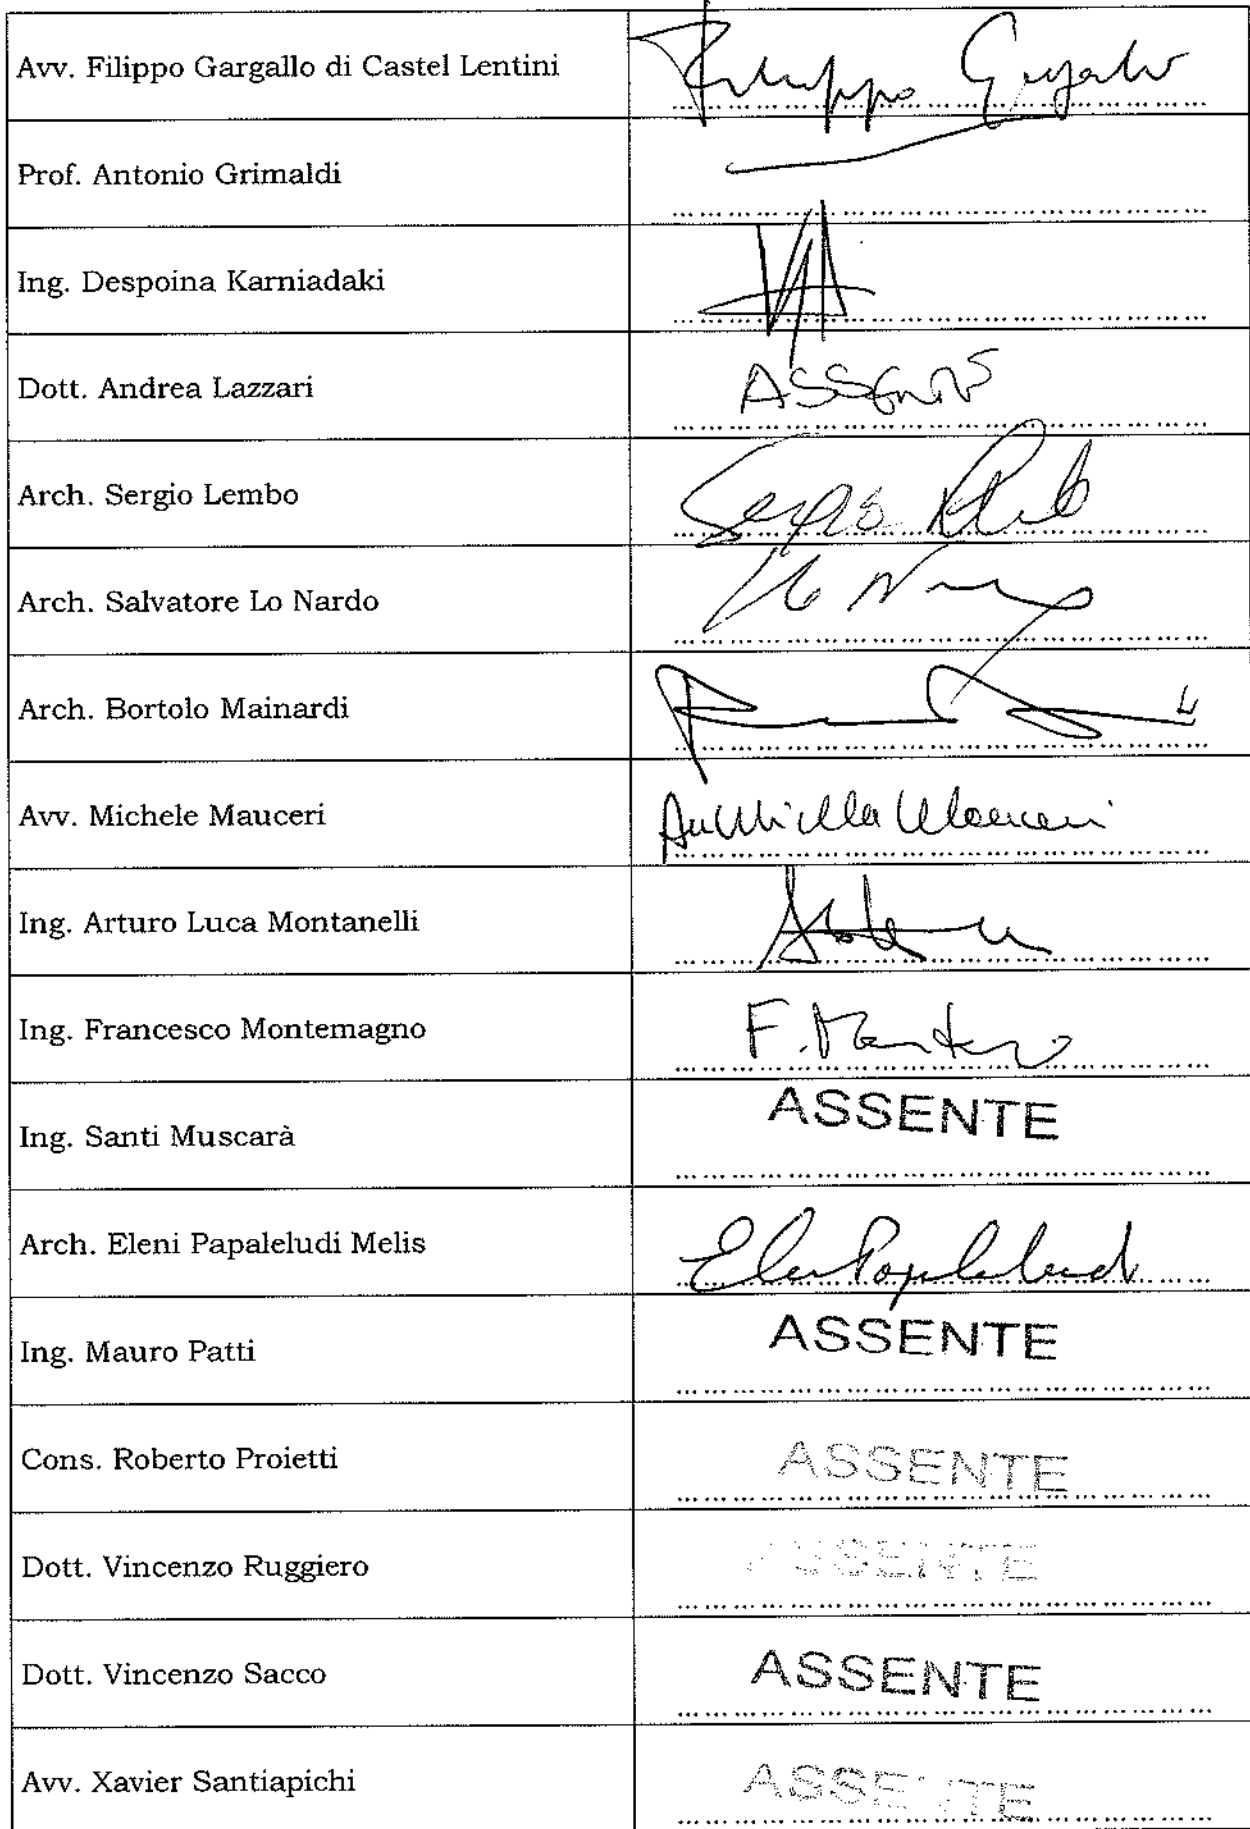 Avv. Filippo Gargallo di Castel Lentini
Filippo Gargallo
Prof. Antonio Grimaldi
Ing. Despoina Karniadaki
Dott. Andrea Lazzari
ASSENTE
Arch. Sergio Lembo
Sergio Lembo
Arch. Salvatore Lo Nardo
Lo Nardo
Arch. Bortolo Mainardi
Avv. Michele Mauceri
Ing. Arturo Luca Montanelli
Ing. Francesco Montemagno
Ing. Santi Muscarà
ASSENTE
Arch. Eleni Papaleludi Melis
Ing. Mauro Patti
ASSENTE
Cons. Roberto Proietti
ASSENTE
Dott. Vincenzo Ruggiero
ASSENTE
Dott. Vincenzo Sacco
ASSENTE
Avv. Xavier Santiapichi
ASSENTE